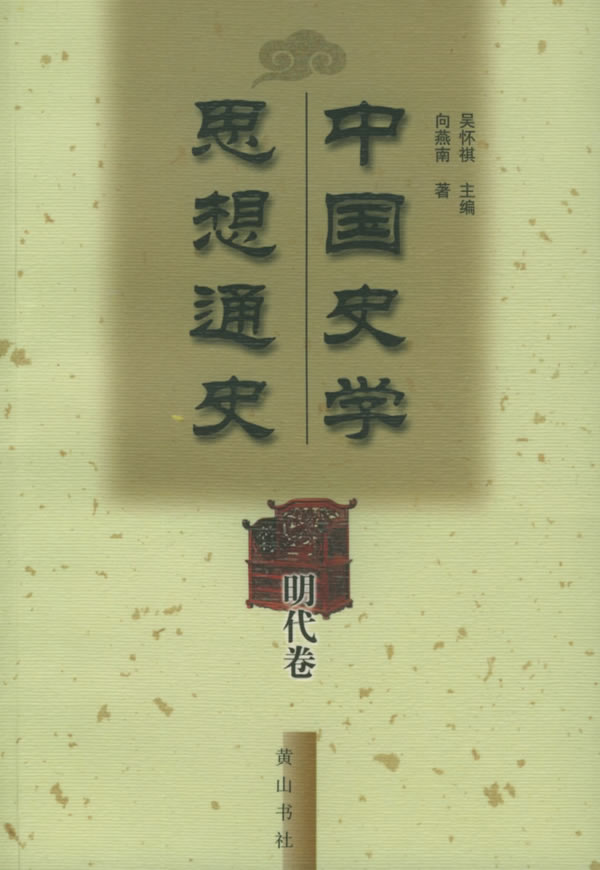 吴怀祺 主编
向燕南 著
中国史学
思想通史
明代卷
黄山书社